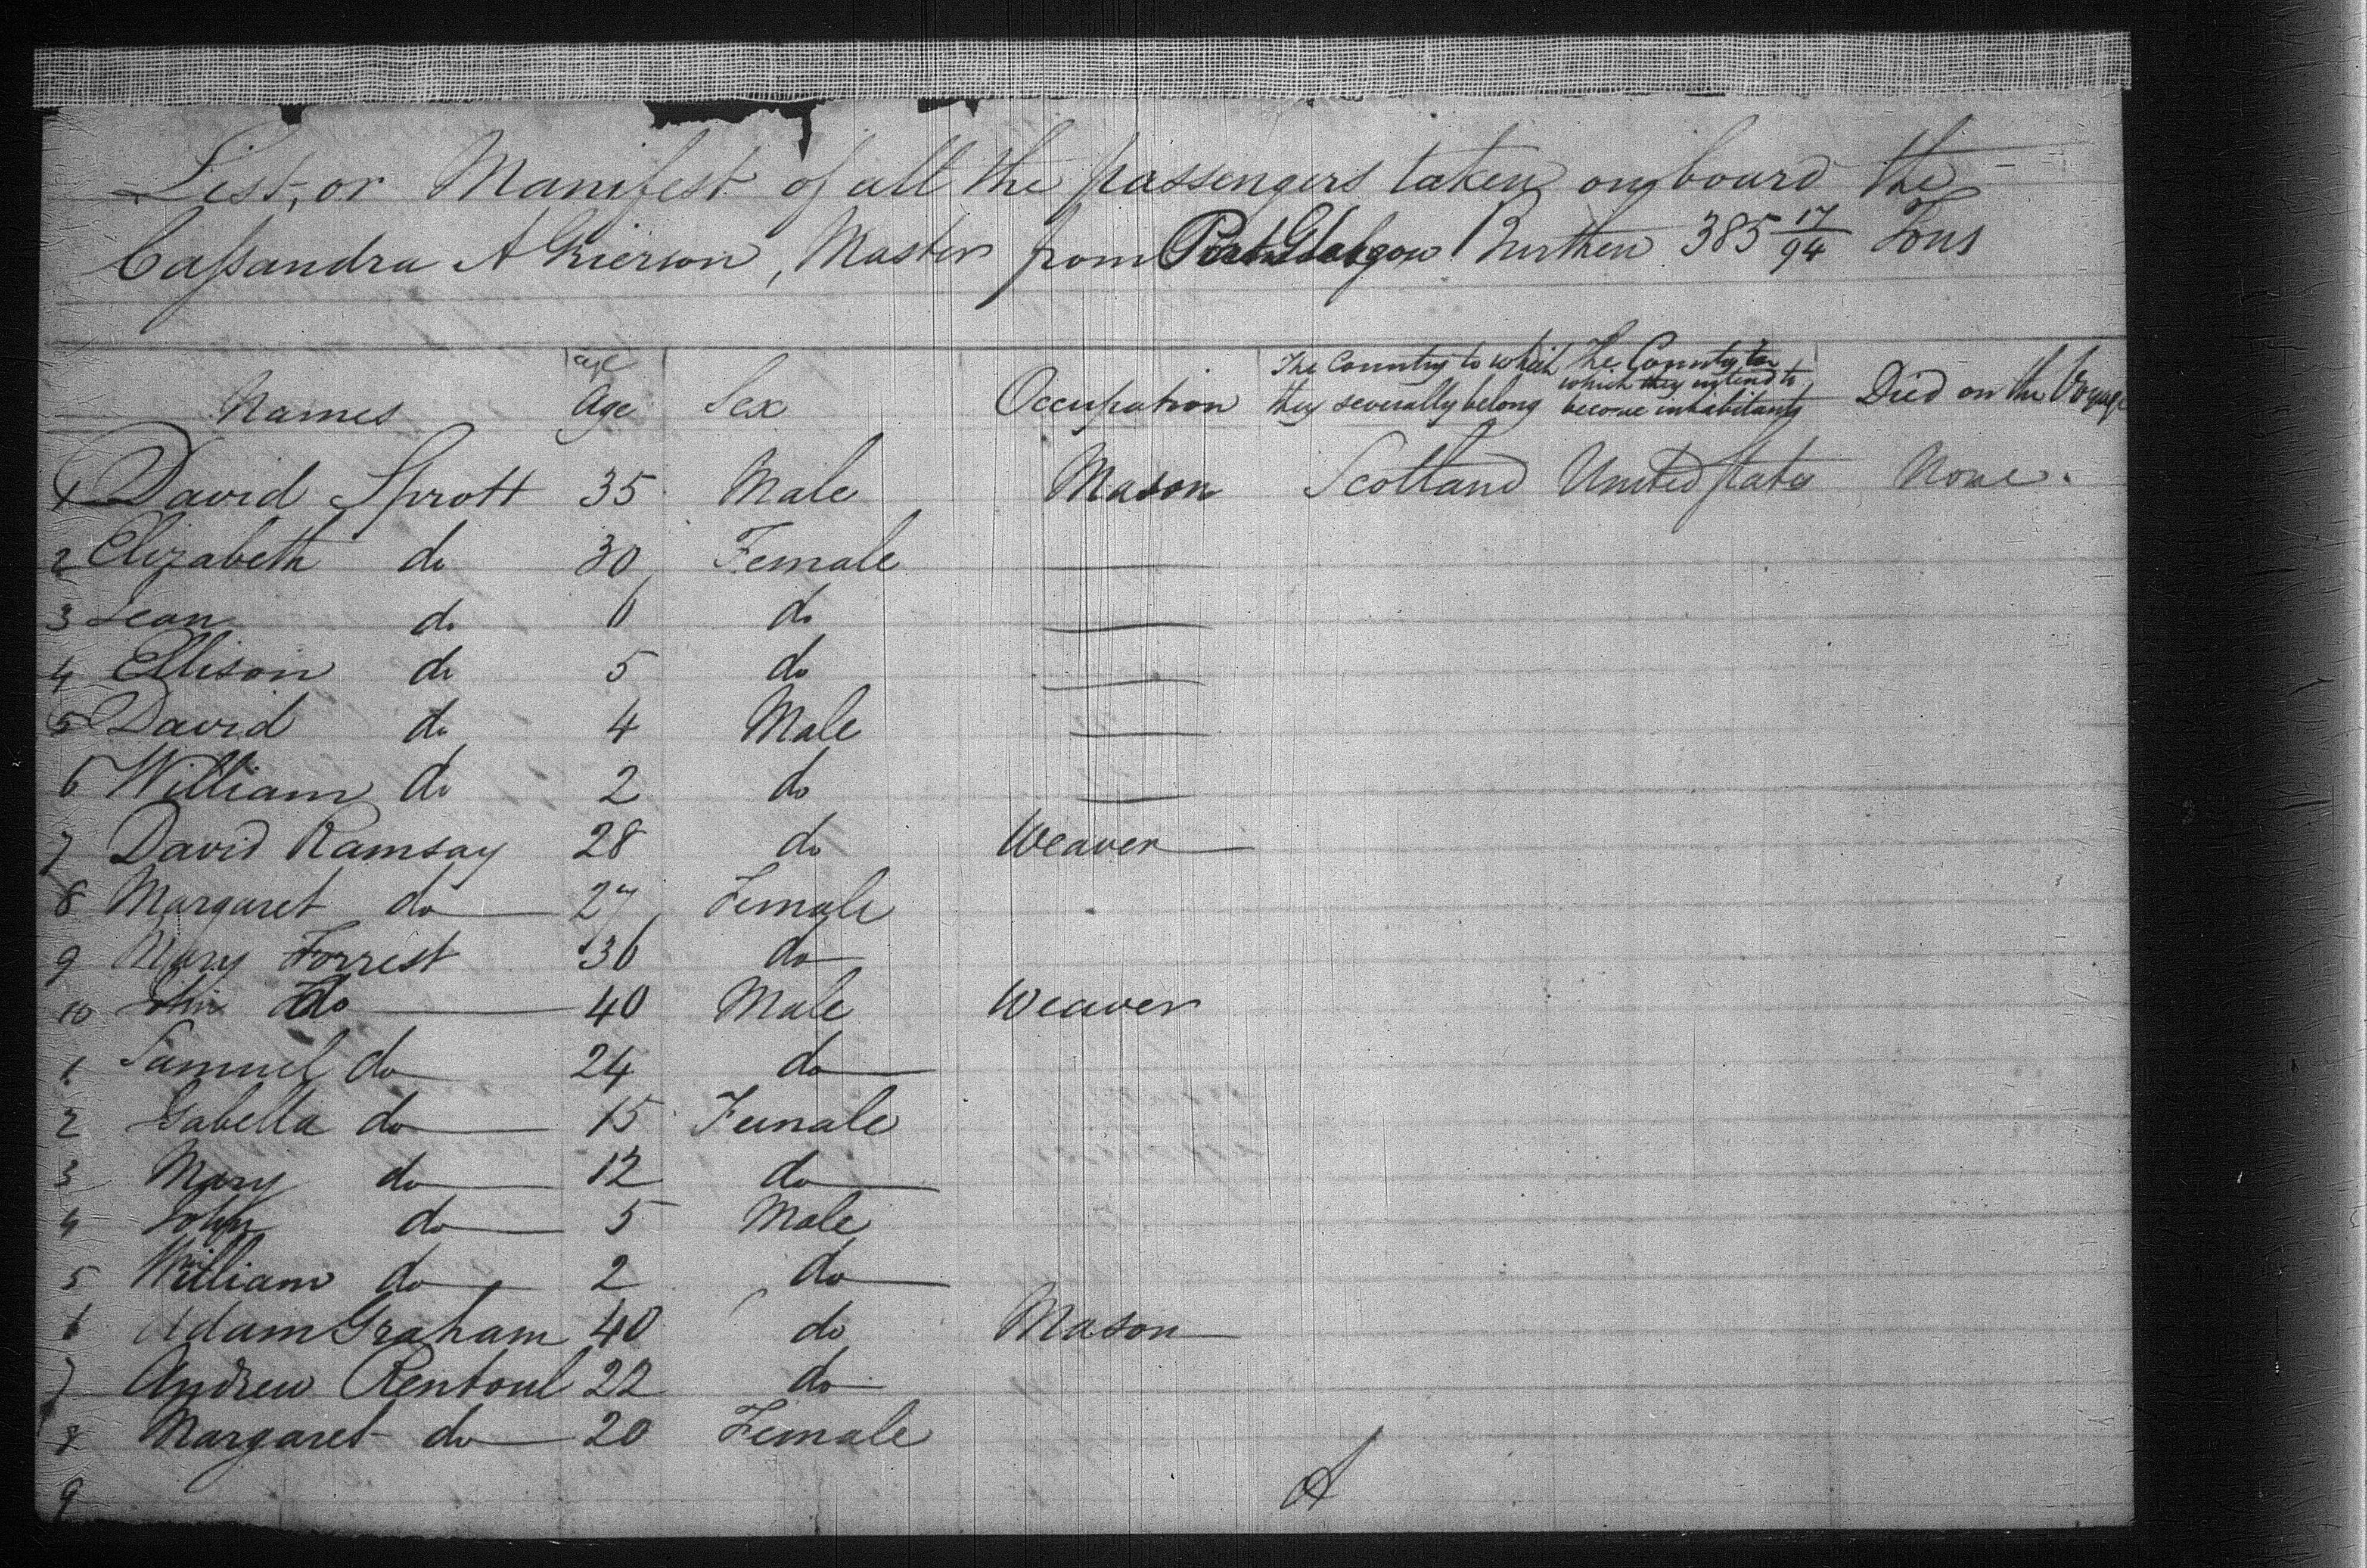 List, or Manifest of all the passengers taken on board the
Cassandra A Grierson, Master from Port Glasgow Burthen 385 17/94 Tons
age
Names Age Sex Occupation The Country to which they severally belong The Country to which they intend to become inhabitants Died on the Voyage
1 David Sprott 35 Male Mason Scotland United States None.
2 Elizabeth do 30 Female
3 Jean do 6 do
4 Ellison do 5 do
5 David do 4 Male
6 William do 2 do
7 David Ramsay 28 do Weaver
8 Margaret do 27 Female
9 Mary Forrest 36 do
10 John do 40 Male Weaver
1 Samuel do 24 do
2 Isabella do 15 Female
3 Mary do 12 do
4 John do 5 Male
5 William do 2 do
6 Adam Graham 40 do Mason
7 Andrew Rentoul 22 do
8 Margaret do 20 Female
9